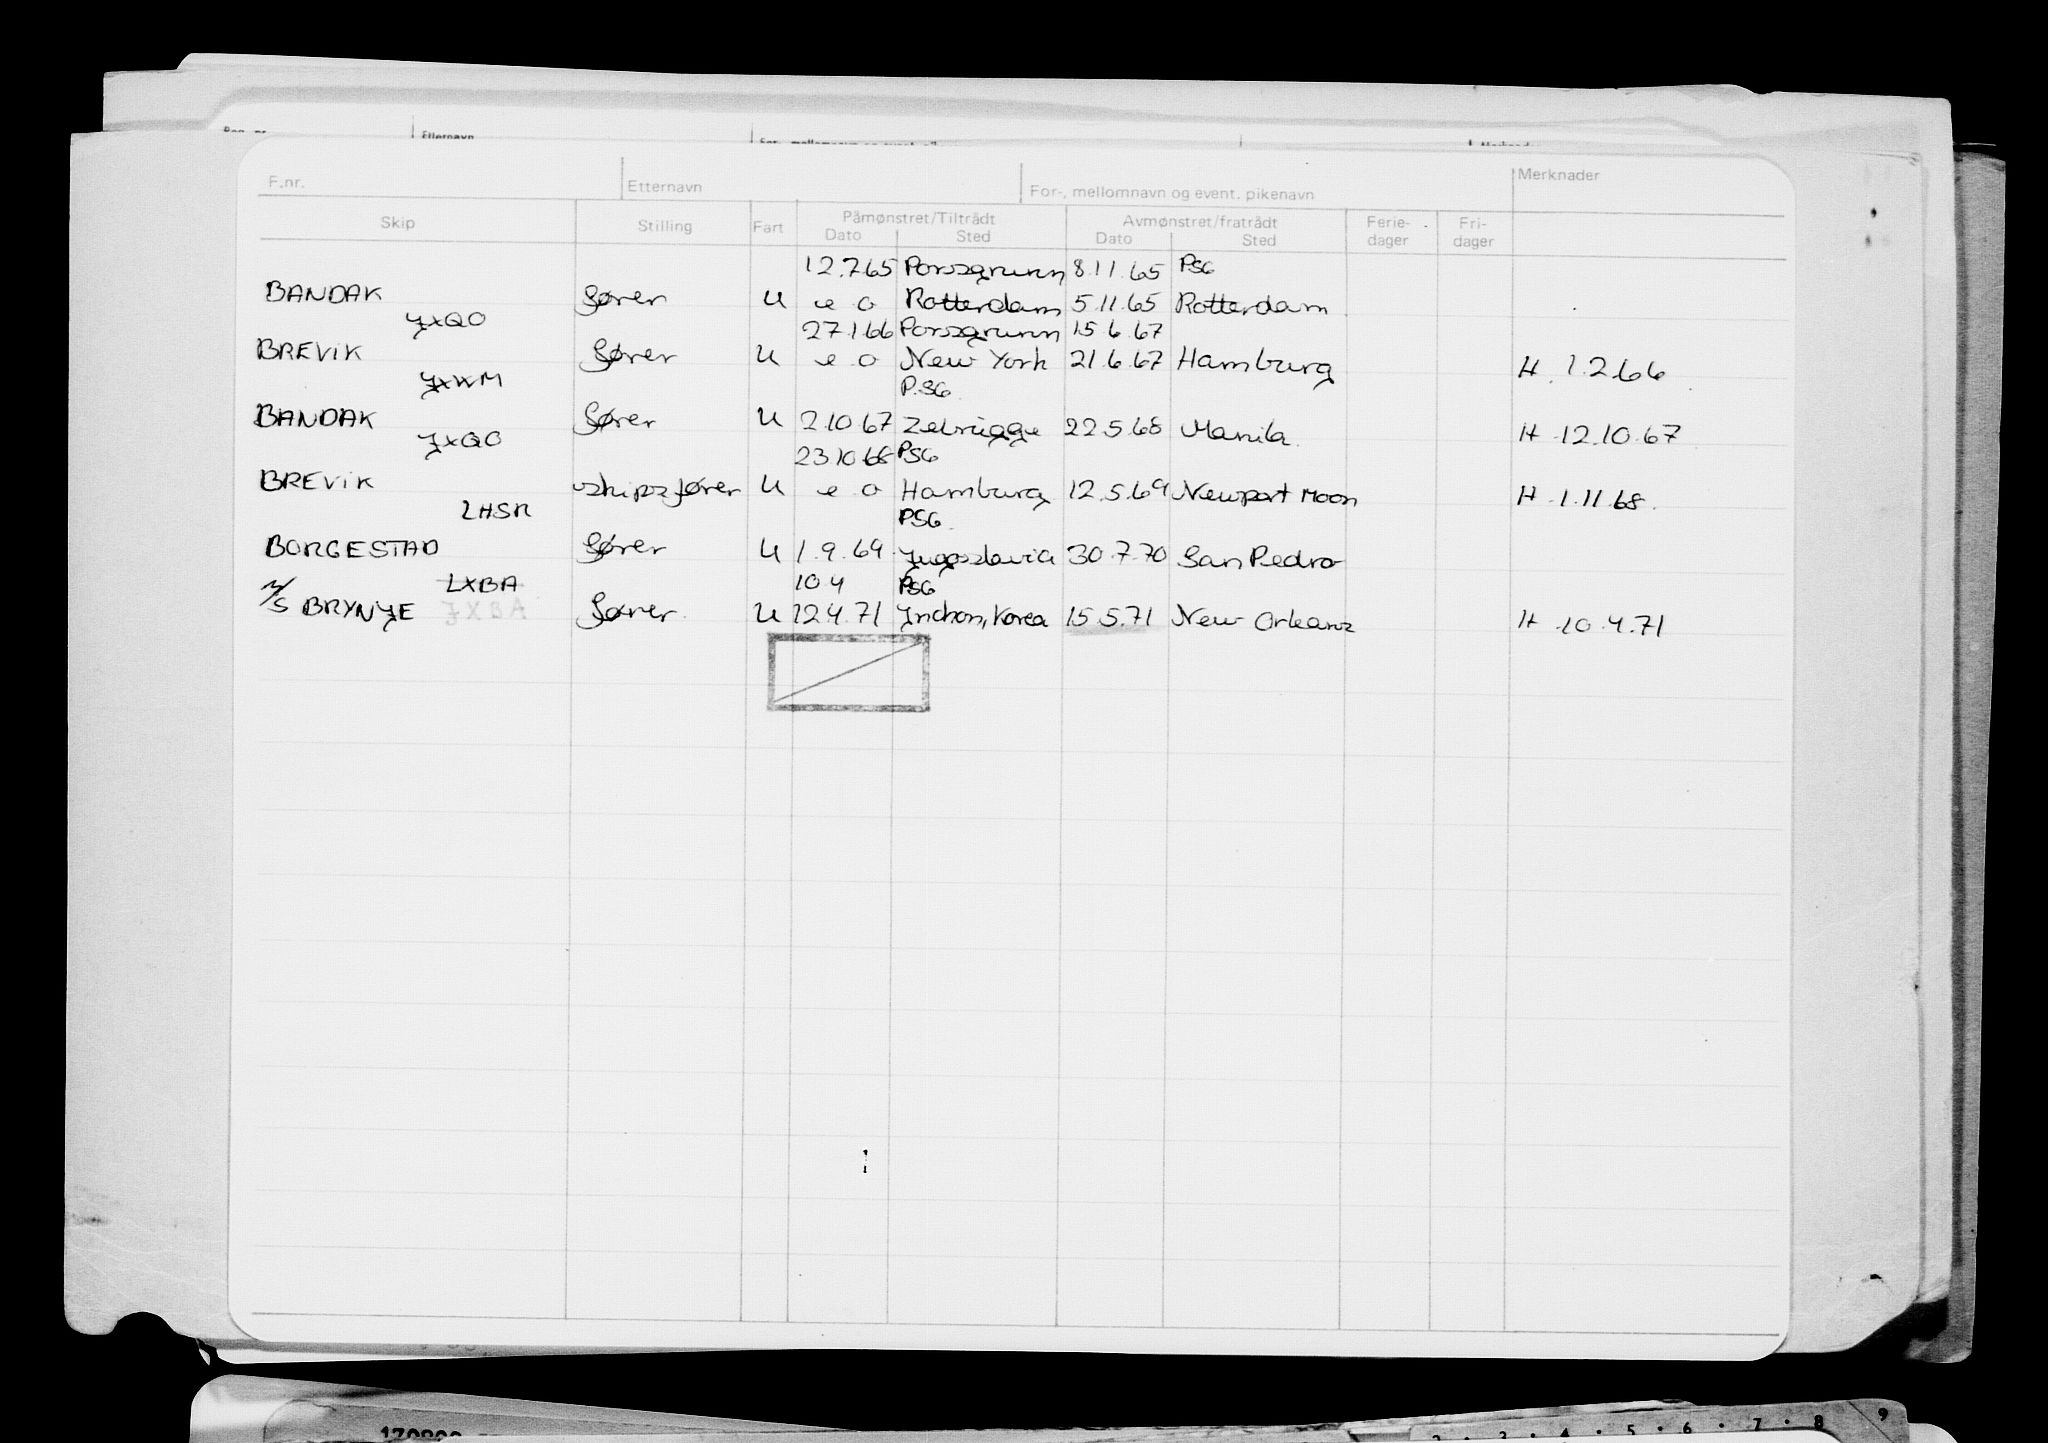 F.nr. Etternavn For-, mellomnavn og event. pikenavn Merknader
Skip Stilling Fart Påmønstret/Tiltrådt Avmønstret/fratrådt Ferie- Fri-
Dato Sted Dato Sted dager dager
12.7.65 Porsgrunn 8.11.65 PSG
BANDAK fører U e o Rotterdam 5.11.65 Rotterdam
JXQO 27.1.66 Porsgrunn 15.6.67
BREVIK fører U e o New York 21.6.67 Hamburg H. 1.2.66
JXWM P.SG.
BANDAK fører U 2.10.67 Zebrügge 22.5.68 Manila H 12.10.67
JXQO 23.10.68 PSG
BREVIK skipsfører U e o Hamburg 12.5.69 Newport Moon H 1.11.68.
LHSR PSG.
BORGESTAD fører U 1.9.69 Jugoslavia 30.7.70 San Pedro
LXBA 10.4 PSG
M/S BRYNJE JXBA fører. U 12.4.71 Inchon, Korea 15.5.71 New Orleans H 10.4.71
2 · 3 · 4 · 5 · 6 · 7 · 8 9